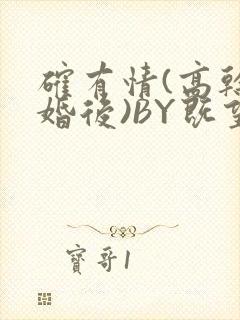 確有情(高幹
婚後)BY既望
寶哥1